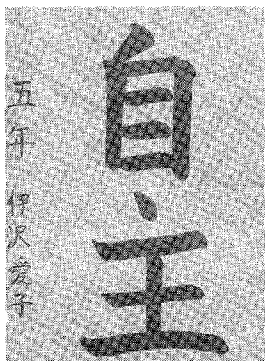 自主
五年 伊沢愛子